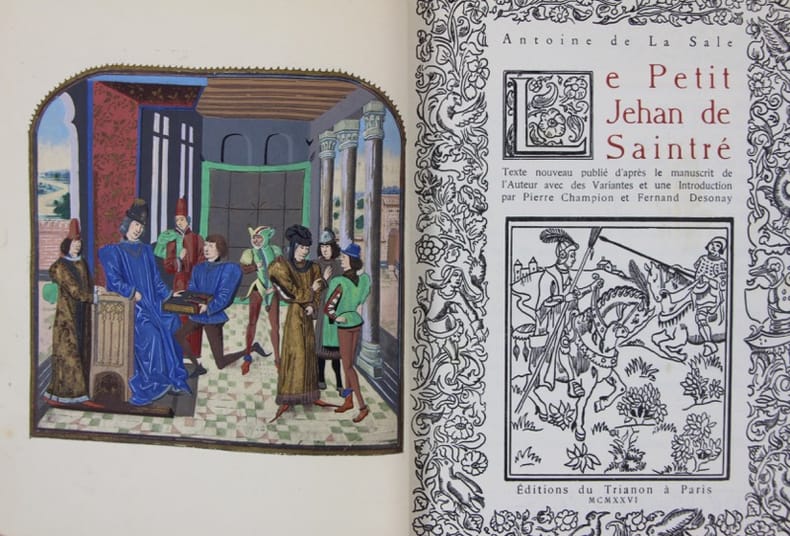 Antoine de La Sale
Le Petit
Jehan de
Saintré
Texte nouveau publié d'après le manuscrit de
l'Auteur avec des Variantes et une Introduction
par Pierre Champion et Fernand Desonay
Éditions du Trianon à Paris
MCMXXVI